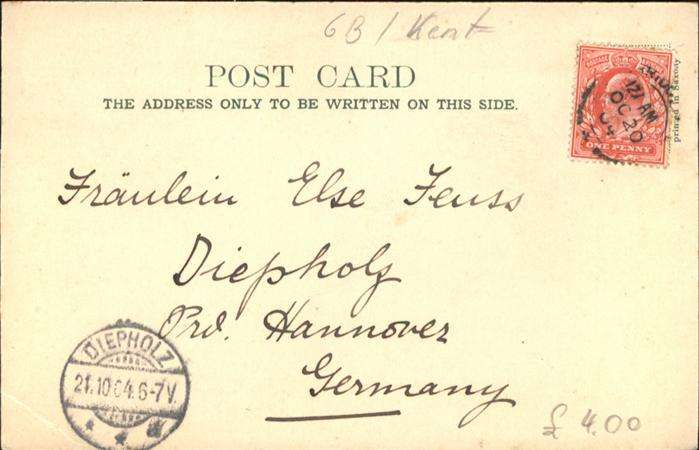 GB / Kent
POST CARD
THE ADDRESS ONLY TO BE WRITTEN ON THIS SIDE.
printed in Saxony
ONE PENNY
12 AM
OC 20
04
Fräulein Else Feuss
Diepholz
Prov. Hannover
Germany
DIEPHOLZ
21.10 04. 6-7V.
£ 4.00